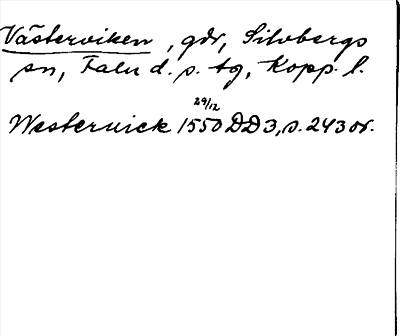 Västerviken, gdr, Silvbergs
sn, Falu d. s. tg, Kopp. l.
29/12
Westerwick 1550 DD3, s. 243 or.